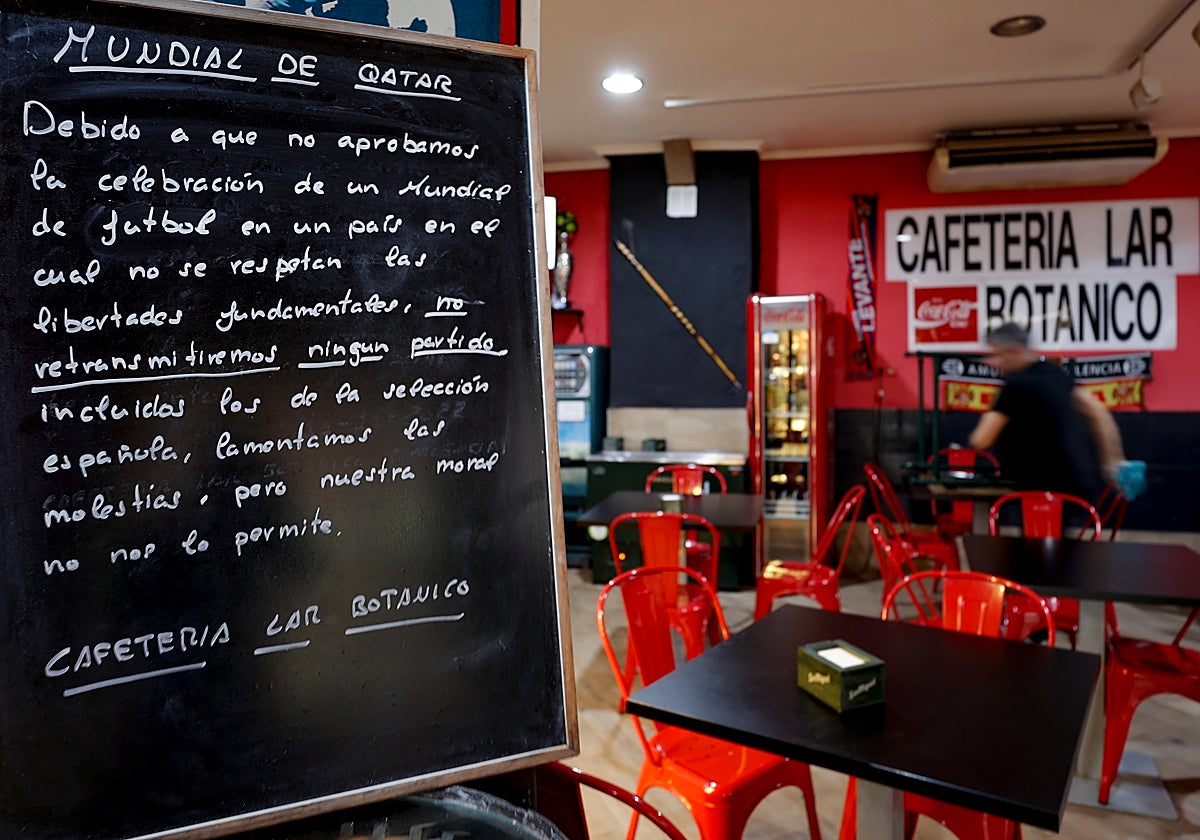 MUNDIAL DE QATAR
Debido a que no aprobamos
la celebración de un Mundial
de futbol en un país en el
cual no se respetan las
libertades fundamentales, no
retransmitiremos ningun partido
incluidos los de la selección
española, lamentamos las
molestias, pero nuestra moral
no nos lo permite.
CAFETERIA LAR BOTANICO
LEVANTE
CAFETERIA LAR
Coca-Cola
BOTANICO
Coca-Cola
LENCIA
San Miguel